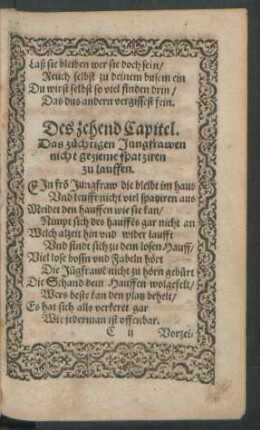 Laß sie bleiben wer sie doch sein/
Kreuch selbst zu deinem busem ein
Du wirst selbst so viel finden drin/
Das dus andern vergissest fein.
Des zehend Capitel.
Das züchtigen Jungfrawen
nicht gezieme spatziren
zu lauffen.
EIn frõ Jungfraw die bleibt im haus
Vnd leufft nicht viel spatziren aus
Meidet den hauffen wie sie kan/
Nimpt sich des hauffẽs gar nicht an
Welch alzeit hin vnd wider laufft
Vnd findt sich zu dem losen Hauff/
Viel lose bossen vnd Fabeln hört
Die Jũgfrawẽ nicht zu hörn gebürt
Die Schand dem Hauffen wolgefelt/
Wers beste kan den platz behelt/
Es hat sich alls verkeret gar
Wie jederman ist offenbar.
C ij Vorzei-